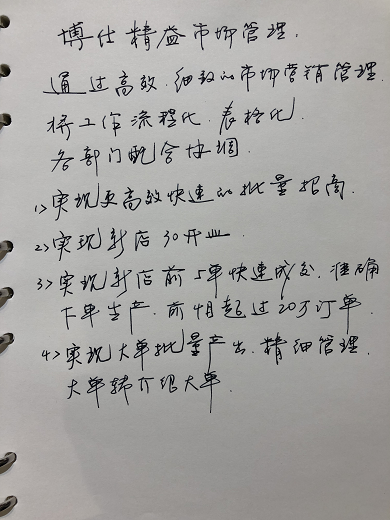 博仕精益市场管理.
通过高效.细致的市场营销管理.
将工作流程化.表格化.
各部门配合协调.
1>实现更高效快速的批量招商.
2>实现新店30开业
3>实现新店前5单快速成交.准确
下单生产.前4月超过20万订单.
4>实现大单批量产出.精细管理.
大单转介绍大单.